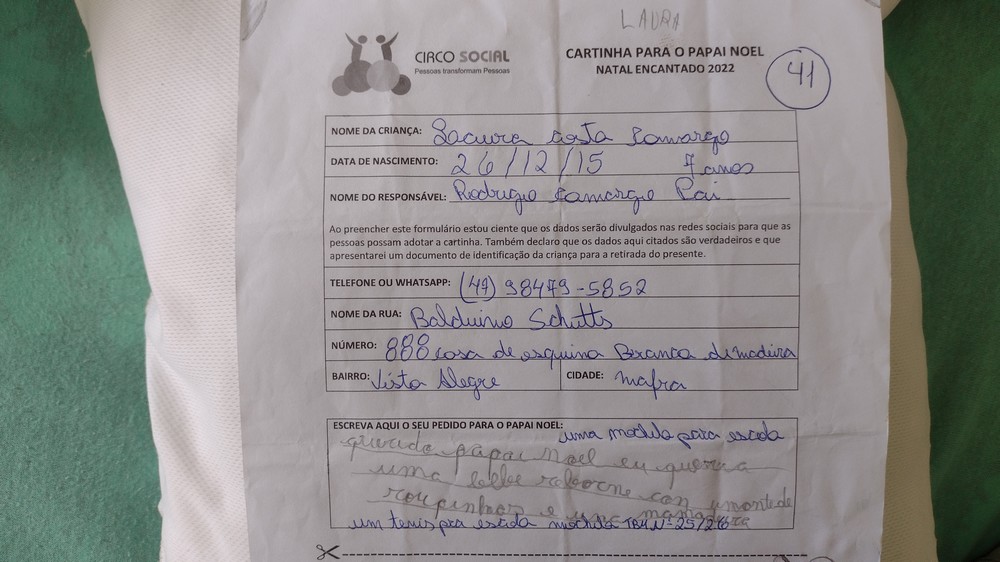 LAURA
CIRCO SOCIAL
Pessoas transformam Pessoas
CARTINHA PARA O PAPAI NOEL
NATAL ENCANTADO 2022
41
NOME DA CRIANÇA: Laura costa Camargo
DATA DE NASCIMENTO: 26/12/15 7 anos
NOME DO RESPONSÁVEL: Rodrigo Camargo Pai
Ao preencher este formulário estou ciente que os dados serão divulgados nas redes sociais para que as
pessoas possam adotar a cartinha. Também declaro que os dados aqui citados são verdadeiros e que
apresentarei um documento de identificação da criança para a retirada do presente.
TELEFONE OU WHATSAPP: (47) 98479-5852
NOME DA RUA: Balduino Schutts
NÚMERO: 888 casa de esquina Branca de madeira
BAIRRO: Vista Alegre CIDADE: Mafra
ESCREVA AQUI O SEU PEDIDO PARA O PAPAI NOEL: uma mochila para escola
querido papai Noel eu queria
uma bebe reborne con umonte de
roupinhas e uma
um tenis pra escola mochila Nº 25/26